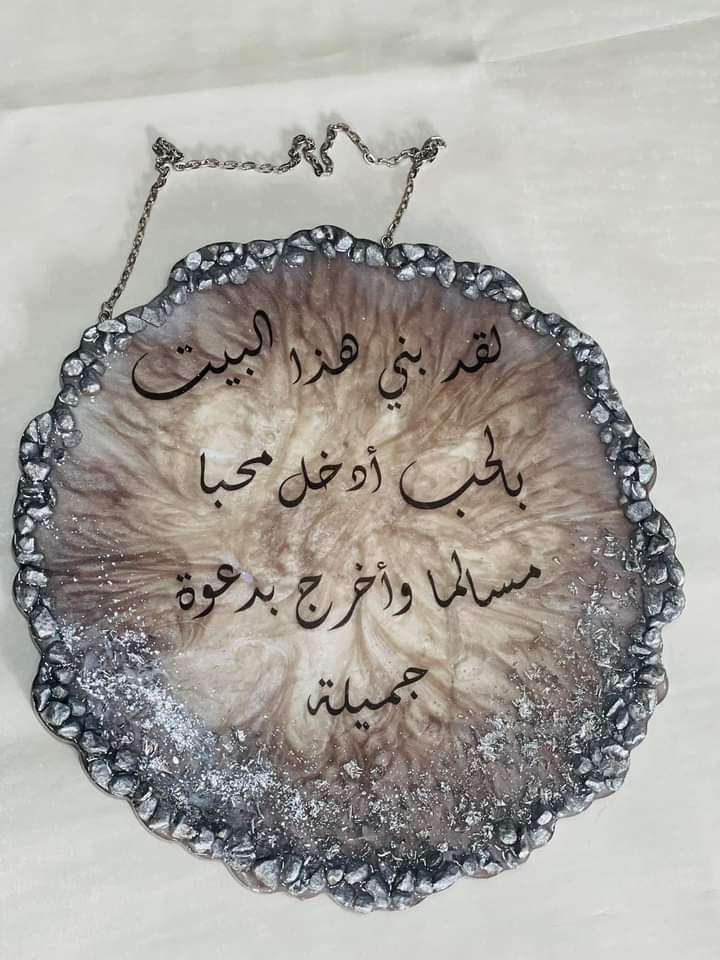 لقد بني هذا البيت
بالحب أدخل محبا
مسالما وأخرج بدعوة
جميلة